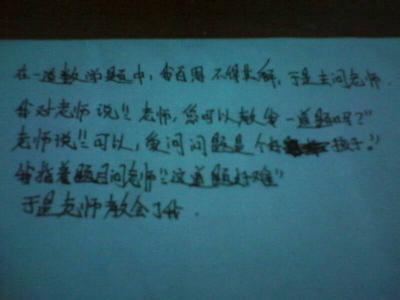 在一道数学题中，我百思不得其解，于是去问老师.
我对老师说："老师，您可以教我一道题吗？"
老师说："可以，爱问问题是个好孩子。"
我指着题目问老师："这道题好难"
于是老师教会了我.